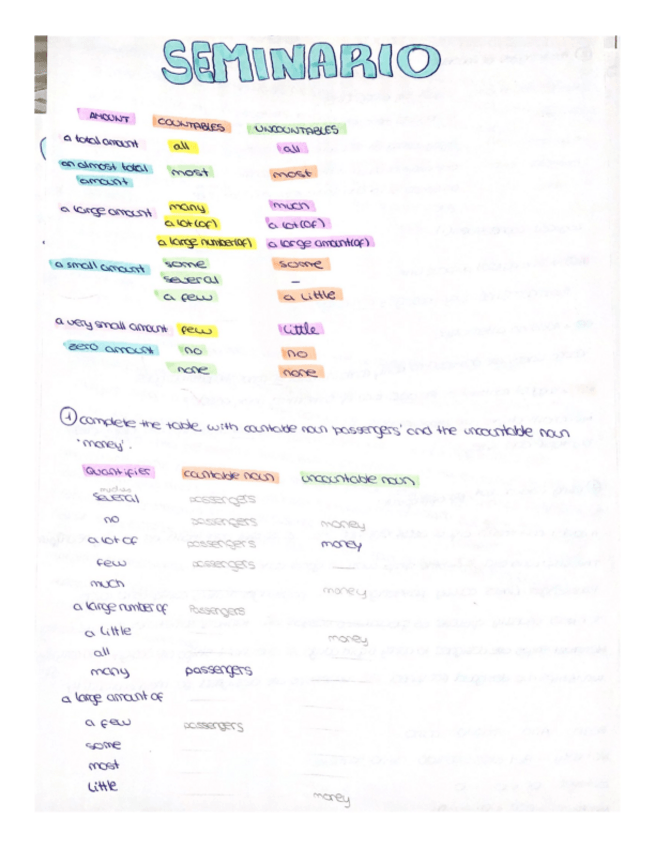 SEMINARIO
AMOUNT COUNTABLES UNCOUNTABLES
a total amount all all
an almost total amount most most
a large amount many much
a lot (of) a lot (of)
a large number (of) a large amount (of)
a small amount some some
several -
a few a little
a very small amount few little
zero amount no no
none none
① complete the table with countable noun passengers' and the uncountable noun
'money'.
Quantifier countable noun uncountable noun
several passengers
no passengers money
a lot of passengers money
few passengers
much money
a large number of passengers
a little money
all
many passengers
a large amount of
a few passengers
some
most
little money